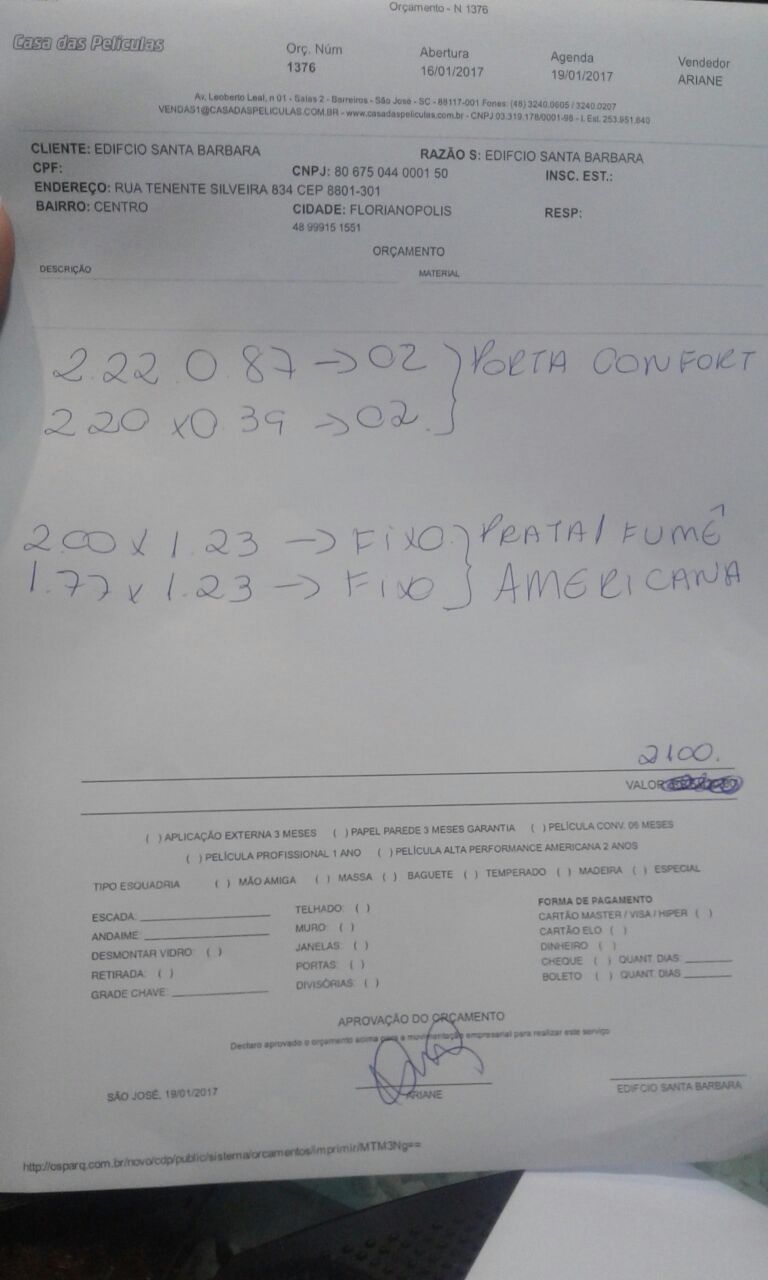 Orçamento - N 1376
Casa das Películas
Orç. Núm Abertura Agenda Vendedor
1376 16/01/2017 19/01/2017 ARIANE
Av. Leoberto Leal, n 01 - Salas 2 - Barreiros - São José - SC - 88117-001 Fones: (48) 3240.0605 / 3240.0207
VENDAS1@CASADASPELICULAS.COM.BR - www.casadaspeliculas.com.br - CNPJ 03.319.178/0001-98 - I. Est. 253.951.640
CLIENTE: EDIFCIO SANTA BARBARA RAZÃO S: EDIFCIO SANTA BARBARA
CPF: CNPJ: 80 675 044 0001 50 INSC. EST.:
ENDEREÇO: RUA TENENTE SILVEIRA 834 CEP 8801-301
BAIRRO: CENTRO CIDADE: FLORIANOPOLIS RESP:
48 99915 1551
ORÇAMENTO
DESCRIÇÃO MATERIAL
2.22 0.87 → 02 } PORTA CONFORT
2 20 x 0.39 → 02. }
2.00 x 1.23 → FIXO. } PRATA / FUMÊ
1.77 x 1.23 → FIXO } AMERICANA
2100.
VALOR
( ) APLICAÇÃO EXTERNA 3 MESES ( ) PAPEL PAREDE 3 MESES GARANTIA ( ) PELÍCULA CONV. 06 MESES
( ) PELÍCULA PROFISSIONAL 1 ANO ( ) PELÍCULA ALTA PERFORMANCE AMERICANA 2 ANOS
TIPO ESQUADRIA ( ) MÃO AMIGA ( ) MASSA ( ) BAGUETE ( ) TEMPERADO ( ) MADEIRA ( ) ESPECIAL
ESCADA: TELHADO: ( ) FORMA DE PAGAMENTO
ANDAIME: MURO: ( ) CARTÃO MASTER / VISA / HIPER ( )
DESMONTAR VIDRO: ( ) JANELAS: ( ) CARTÃO ELO ( )
RETIRADA: ( ) PORTAS: ( ) DINHEIRO ( )
GRADE CHAVE: DIVISÓRIAS: ( ) CHEQUE ( ) QUANT. DIAS:
BOLETO ( ) QUANT. DIAS
APROVAÇÃO DO ORÇAMENTO
Declaro aprovado o orçamento acima para a movimentação empresarial para realizar este serviço
SÃO JOSÉ, 19/01/2017 ARIANE EDIFCIO SANTA BARBARA
http://osparq.com.br/novo/cdp/public/sistema/orcamentos/imprimir/MTM3Ng==